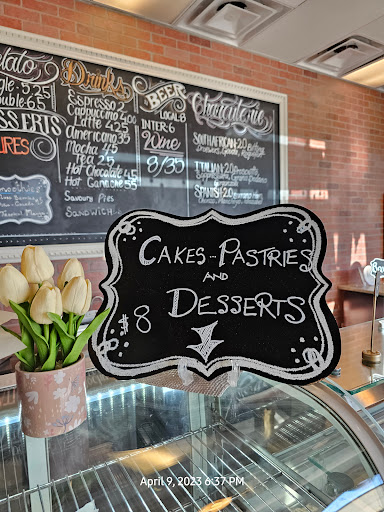 Gelato
Single 5.25
Double 6.5
DESSERTS
Drinks
Espresso 2
Cappuccino 4
Latte 5
Americano 3.5
Mocha 4.5
Tea 2.5
Hot Chocolate 4.5
Savoury Pies
Sandwich
BEER
LOCAL 8
INTER 6
Wine
8/35
Charcuterie
SOUTH AFRICAN 20
ITALIAN 20
SPANISH 20
CAKES - PASTRIES
AND
$8 DESSERTS
April 9, 2023 6:37 PM